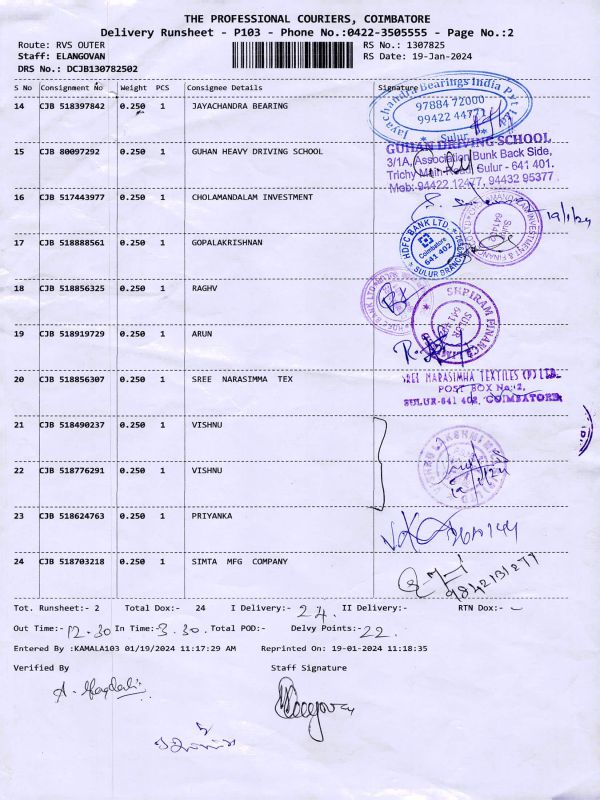 THE PROFESSIONAL COURIERS, COIMBATORE
Delivery Runsheet - P103 - Phone No.:0422-3505555 - Page No.:2
Route: RVS OUTER
RS No.: 1307825
Staff: ELANGOVAN
RS Date: 19-Jan-2024
DRS No.: DCJB130782502
S No Consignment No Weight PCS Consignee Details Signature
14 CJB 518397842 0.250 1 JAYACHANDRA BEARING
Jayachandra Bearings India Pvt Ltd
97884 72000
99422 44771
* Sulur *
15 CJB 80097292 0.250 1 GUHAN HEAVY DRIVING SCHOOL
GUHAN DRIVING SCHOOL
3/1A, Association Bunk Back Side,
Trichy Main Road, Sulur - 641 401.
Mob: 94422 12477, 94432 95377
16 CJB 517443977 0.250 1 CHOLAMANDALAM INVESTMENT
19/1/24
17 CJB 518888561 0.250 1 GOPALAKRISHNAN
HDFC BANK LTD
Coimbatore
641 402
SULUR BRANCH
18 CJB 518856325 0.250 1 RAGHV
SHRIRAM FINANCE
SULUR
19 CJB 518919729 0.250 1 ARUN
20 CJB 518856307 0.250 1 SREE NARASIMMA TEX
SREE NARASIMHA TEXTILES (P) LTD.
POST BOX No:12,
SULUR-641 402, COIMBATORE
21 CJB 518490237 0.250 1 VISHNU
22 CJB 518776291 0.250 1 VISHNU
23 CJB 518624763 0.250 1 PRIYANKA
24 CJB 518703218 0.250 1 SIMTA MFG COMPANY
9842131277
Tot. Runsheet:- 2 Total Dox:- 24 I Delivery:- 24 II Delivery:- RTN Dox:-
Out Time:- 12.30 In Time:- 3.30. Total POD:- Delvy Points:- 22.
Entered By :KAMALA103 01/19/2024 11:17:29 AM Reprinted On: 19-01-2024 11:18:35
Verified By Staff Signature